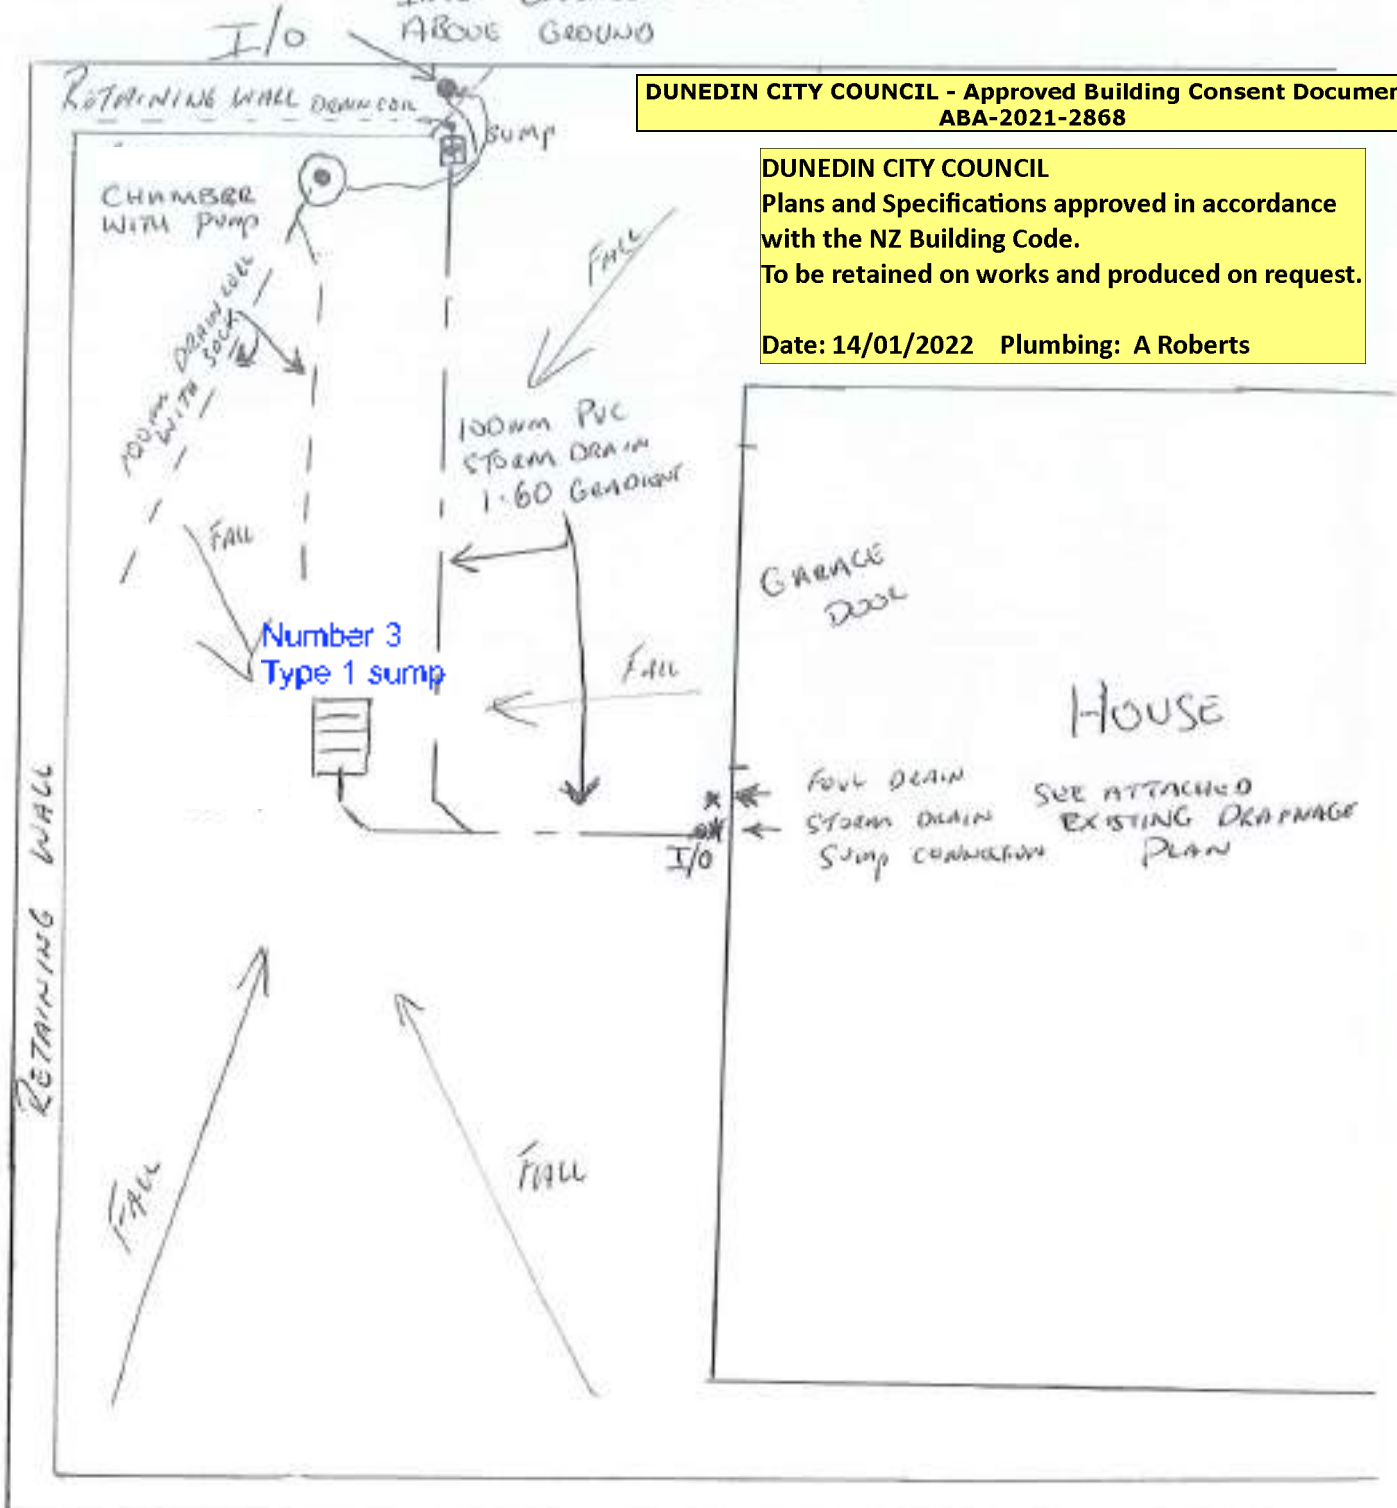 I/O
ABOVE GROUND
RETAINING WALL DRAINCOIL
SUMP
DUNEDIN CITY COUNCIL - Approved Building Consent Documen
ABA-2021-2868
DUNEDIN CITY COUNCIL
Plans and Specifications approved in accordance
with the NZ Building Code.
To be retained on works and produced on request.
Date: 14/01/2022 Plumbing: A Roberts
CHAMBER
WITH PUMP
FALL
DRAIN COIL
WITH SOCK
100mm PVC
STORM DRAIN
1:60 GRADIENT
FALL
GARAGE
DOOR
Number 3
Type 1 sump
FALL
HOUSE
FOUL DRAIN
STORM DRAIN
SUMP CONNECTION
SEE ATTACHED
EXISTING DRAINAGE
PLAN
I/O
RETAINING WALL
FALL
FALL